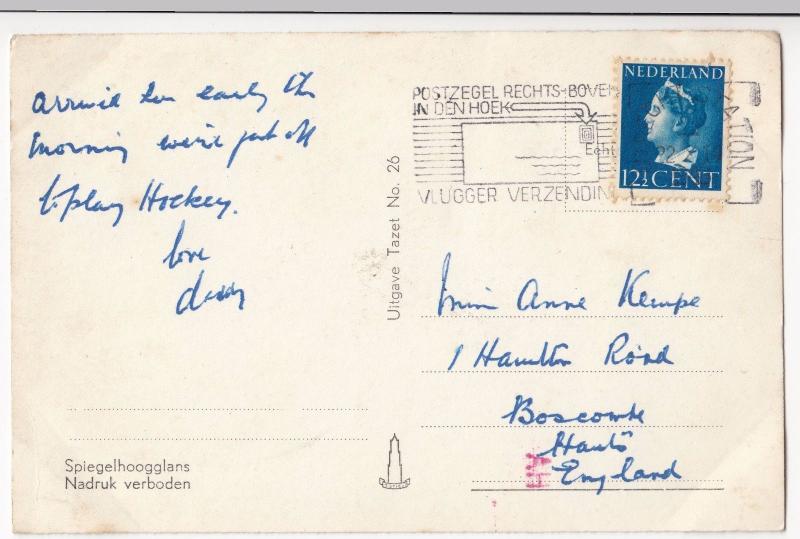 Arrived here early this
morning we're just off
to play Hockey.
love
daddy
Spiegelhoogglans
Nadruk verboden
Uitgave Tazet No. 26
POSTZEGEL RECHTS-BOVEN
IN DEN HOEK
VLUGGER VERZENDIN
Echt
NEDERLAND
12½ CENT
Miss Anne Kempe
1 Hamilton Road
Boscombe
Hants
England